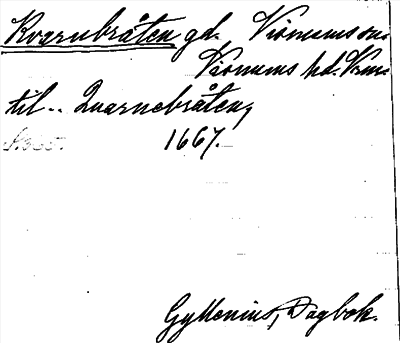 Kvarnbråten gd. Visnums sn.
Visnums hd. Vrm.
til.. Quarnebråten,
S. 365. 1667.
Gyllenius, Dagbok.